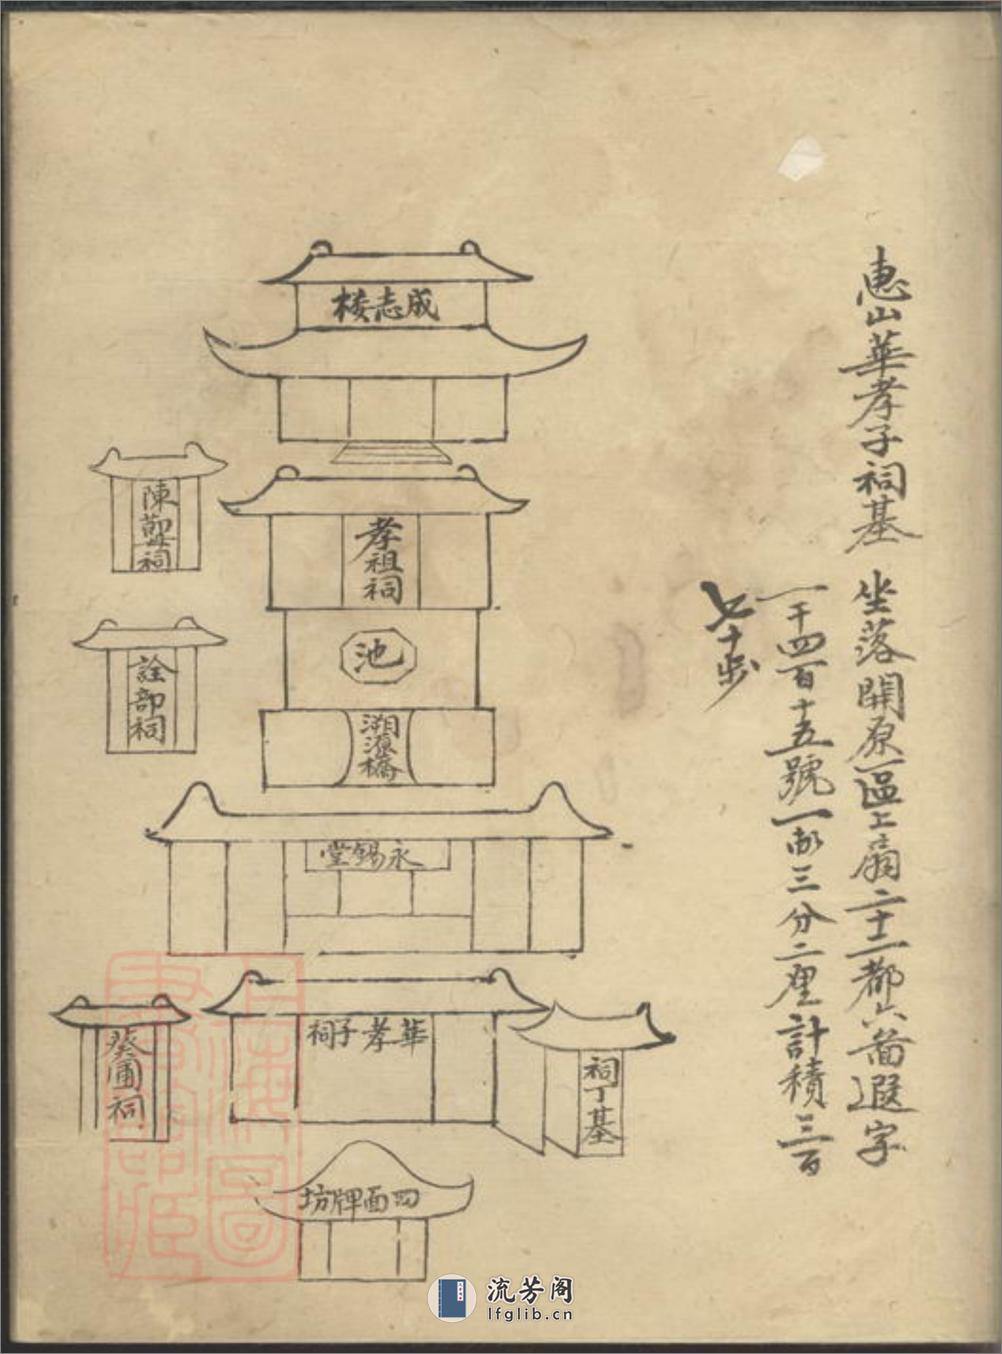 惠山華孝子祠基 坐落開原區上扇二十一都六啚遐字
一千四百十五號一畝三分二厘計積三百
七十步
成志楼
孝祖祠
池
溯源橋
永錫堂
華孝子祠
祠丁基
四面牌坊
陳祠
詮部祠
葵圃祠
上海圖書館藏
流芳阁
lfglib.cn